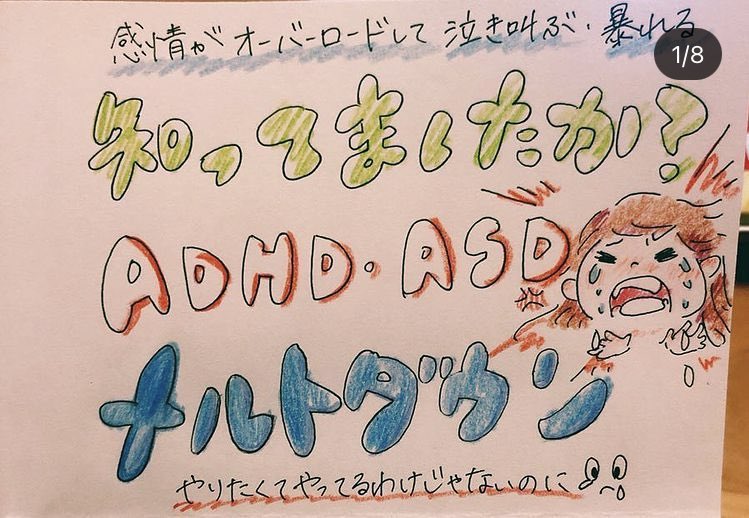 感情がオーバーロードして泣き叫ぶ・暴れる
1/8
知ってましたか?
ADHD・ASD
メルトダウン
やりたくてやってるわけじゃないのに